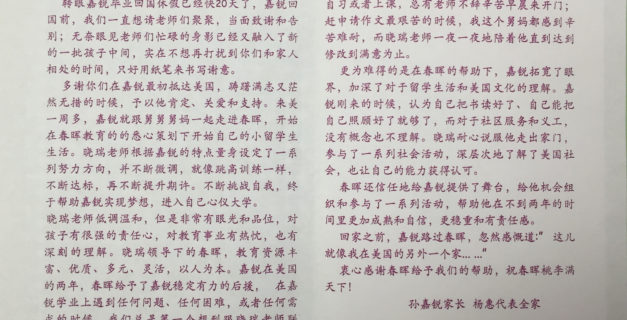 转眼嘉锐毕业回国休假已经快20天了，嘉锐回
国前，我们一直想请老师们聚聚，当面致谢和告
别；无奈眼见老师们忙碌的身影已经又融入了新
的一批孩子中间，实在不想再打扰到你们和家人
相处的时间，只好用纸笔来书写谢意。
多谢你们在嘉锐最初抵达美国，踌躇满志又茫
然无措的时候，予以他肯定、关爱和支持。来美
一周多，嘉锐就跟舅舅舅妈一起走进春晖，开始
在春晖教育的的悉心策划下开始自己的小留学生
生活。晓瑞老师根据嘉锐的特点量身设定了一系
列努力方向，并不断微调，就像跳高训练一样，
不断达标，再不断提升期许。不断挑战自我，终
于帮助嘉锐实现梦想，进入自己心仪大学。
晓瑞老师低调温和，但是非常有眼光和品位，对
孩子有很强的责任心，对教育事业有热忱，也有
深刻的理解。晓瑞领导下的春晖，教育资源丰
富、优质、多元、灵活，以人为本。嘉锐在美国
的两年，春晖给予了嘉锐稳定有力的后援， 在嘉
锐学业上遇到任何问题、任何困难，或者任何需
自习或者上课，总有老师不辞辛苦早晨来开门；
赶申请作文最艰苦的时候，我这个舅妈都感到辛
苦难耐，而晓瑞老师一夜一夜地陪着他直到达到
修改到满意为止。
更为难得的是在春晖的帮助下，嘉锐拓宽了眼
界，加深了对于留学生活和美国文化的理解。嘉
锐刚来的时候，认为自己把书读好了、自己能把
自己照顾好了就够了，而对于社区服务和义工，
没有概念也不理解。晓瑞耐心说服他走出家门，
参与了一系列社会活动，深层次地了解了美国社
会，也让自己的能力获得认可。
春晖还信任地给嘉锐提供了舞台，给他机会组
织和参与了一系列活动，帮助他在不到两年的时
间里更加成熟和自信，更稳重和有责任感。
回家之前，嘉锐路过春晖，忽然感慨道:“ 这儿
就像我在美国的另外一个家... ...”
衷心感谢春晖给予我们的帮助，祝春晖桃李满
天下！
孙嘉锐家长 杨惠代表全家